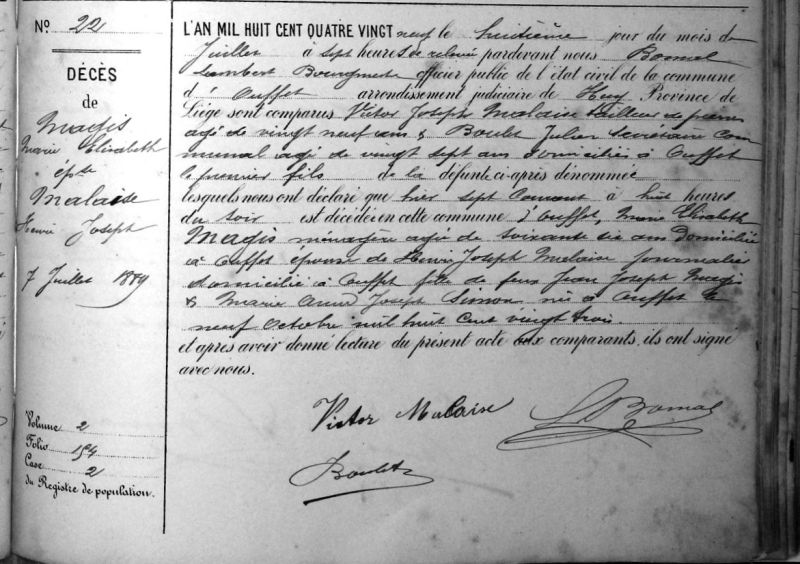 N° 22
DÉCÈS
de
Magis
Marie Elisabeth
épse
Malaise
Henri Joseph
7 Juillet 1889
Volume 2
Folio 154
Case 2
du Registre de population.
L'AN MIL HUIT CENT QUATRE VINGT neuf le huitième jour du mois de
Juillet à sept heures de relevée pardevant nous Bomal
Lambert Bourgmestre officier public de l'état civil de la commune
d' Ouffet arrondissement judiciaire de Huy Province de
Liège sont comparus Victor Joseph Malaise tailleur de pierres
agé de vingt neuf ans & Boulet Julien Secrétaire Com
munal agé de vingt sept ans domiciliés à Ouffet
le premier fils de la défunte ci-après dénommée
lesquels nous ont déclaré que hier sept courant à huit heures
du soir est décédée en cette commune d'Ouffet, Marie Elisabeth
Magis ménagère agée de soixante six ans domiciliée
à Ouffet épouse de Henri Joseph Malaise journalier
domicilié à Ouffet fille de feux Jean Joseph Magis
& Marie Anne Joseph Simon née à Ouffet le
neuf Octobre mil huit Cent vingt trois.
et après avoir donné lecture du présent acte aux comparants, ils ont signé
avec nous.
Victor Malaise L Bomal
Boulet